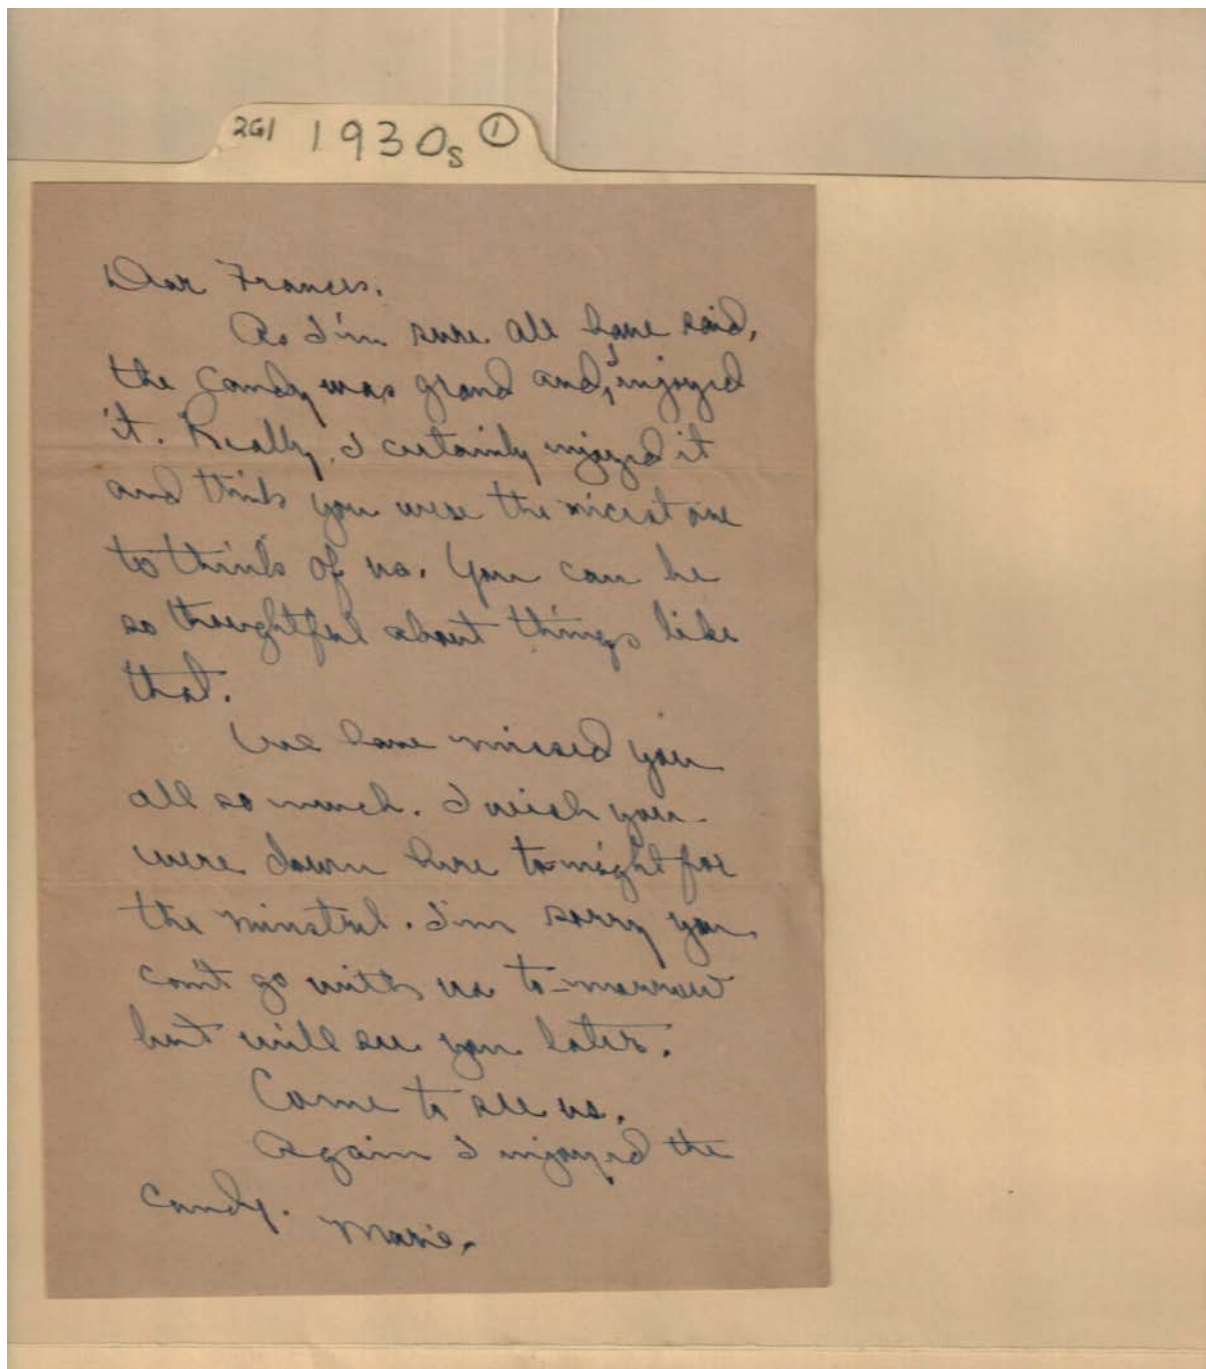 2G1 1930s ①
Dear Frances.
As I'm sure all have said,
the candy was grand and, I enjoyed
it. Really, I certainly enjoyed it
and think you were the nicest one
to think of us. You can be
so thoughtful about things like
that.
We have missed you
all so much. I wish you
were down here to-night for
the minstrel. I'm sorry you
can't go with us to-morrow
but will see you later.
Come to see us.
Again I enjoyed the
candy. Marie.